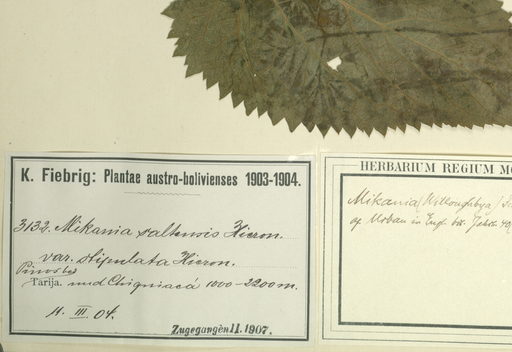 K. Fiebrig: Plantae austro-bolivienses 1903-1904.
3132. Mikania saltensis Hieron.
var. stipulata Hieron.
Pinos bei
Tarija. und Chiquiacá 1000-2200 m.
11. III. 04.
Zugegangen 11. 1907.
HERBARIUM REGIUM MO
Mikania (Willoughbya)
cf Urban in Engl. bot. Jahrb. 40,